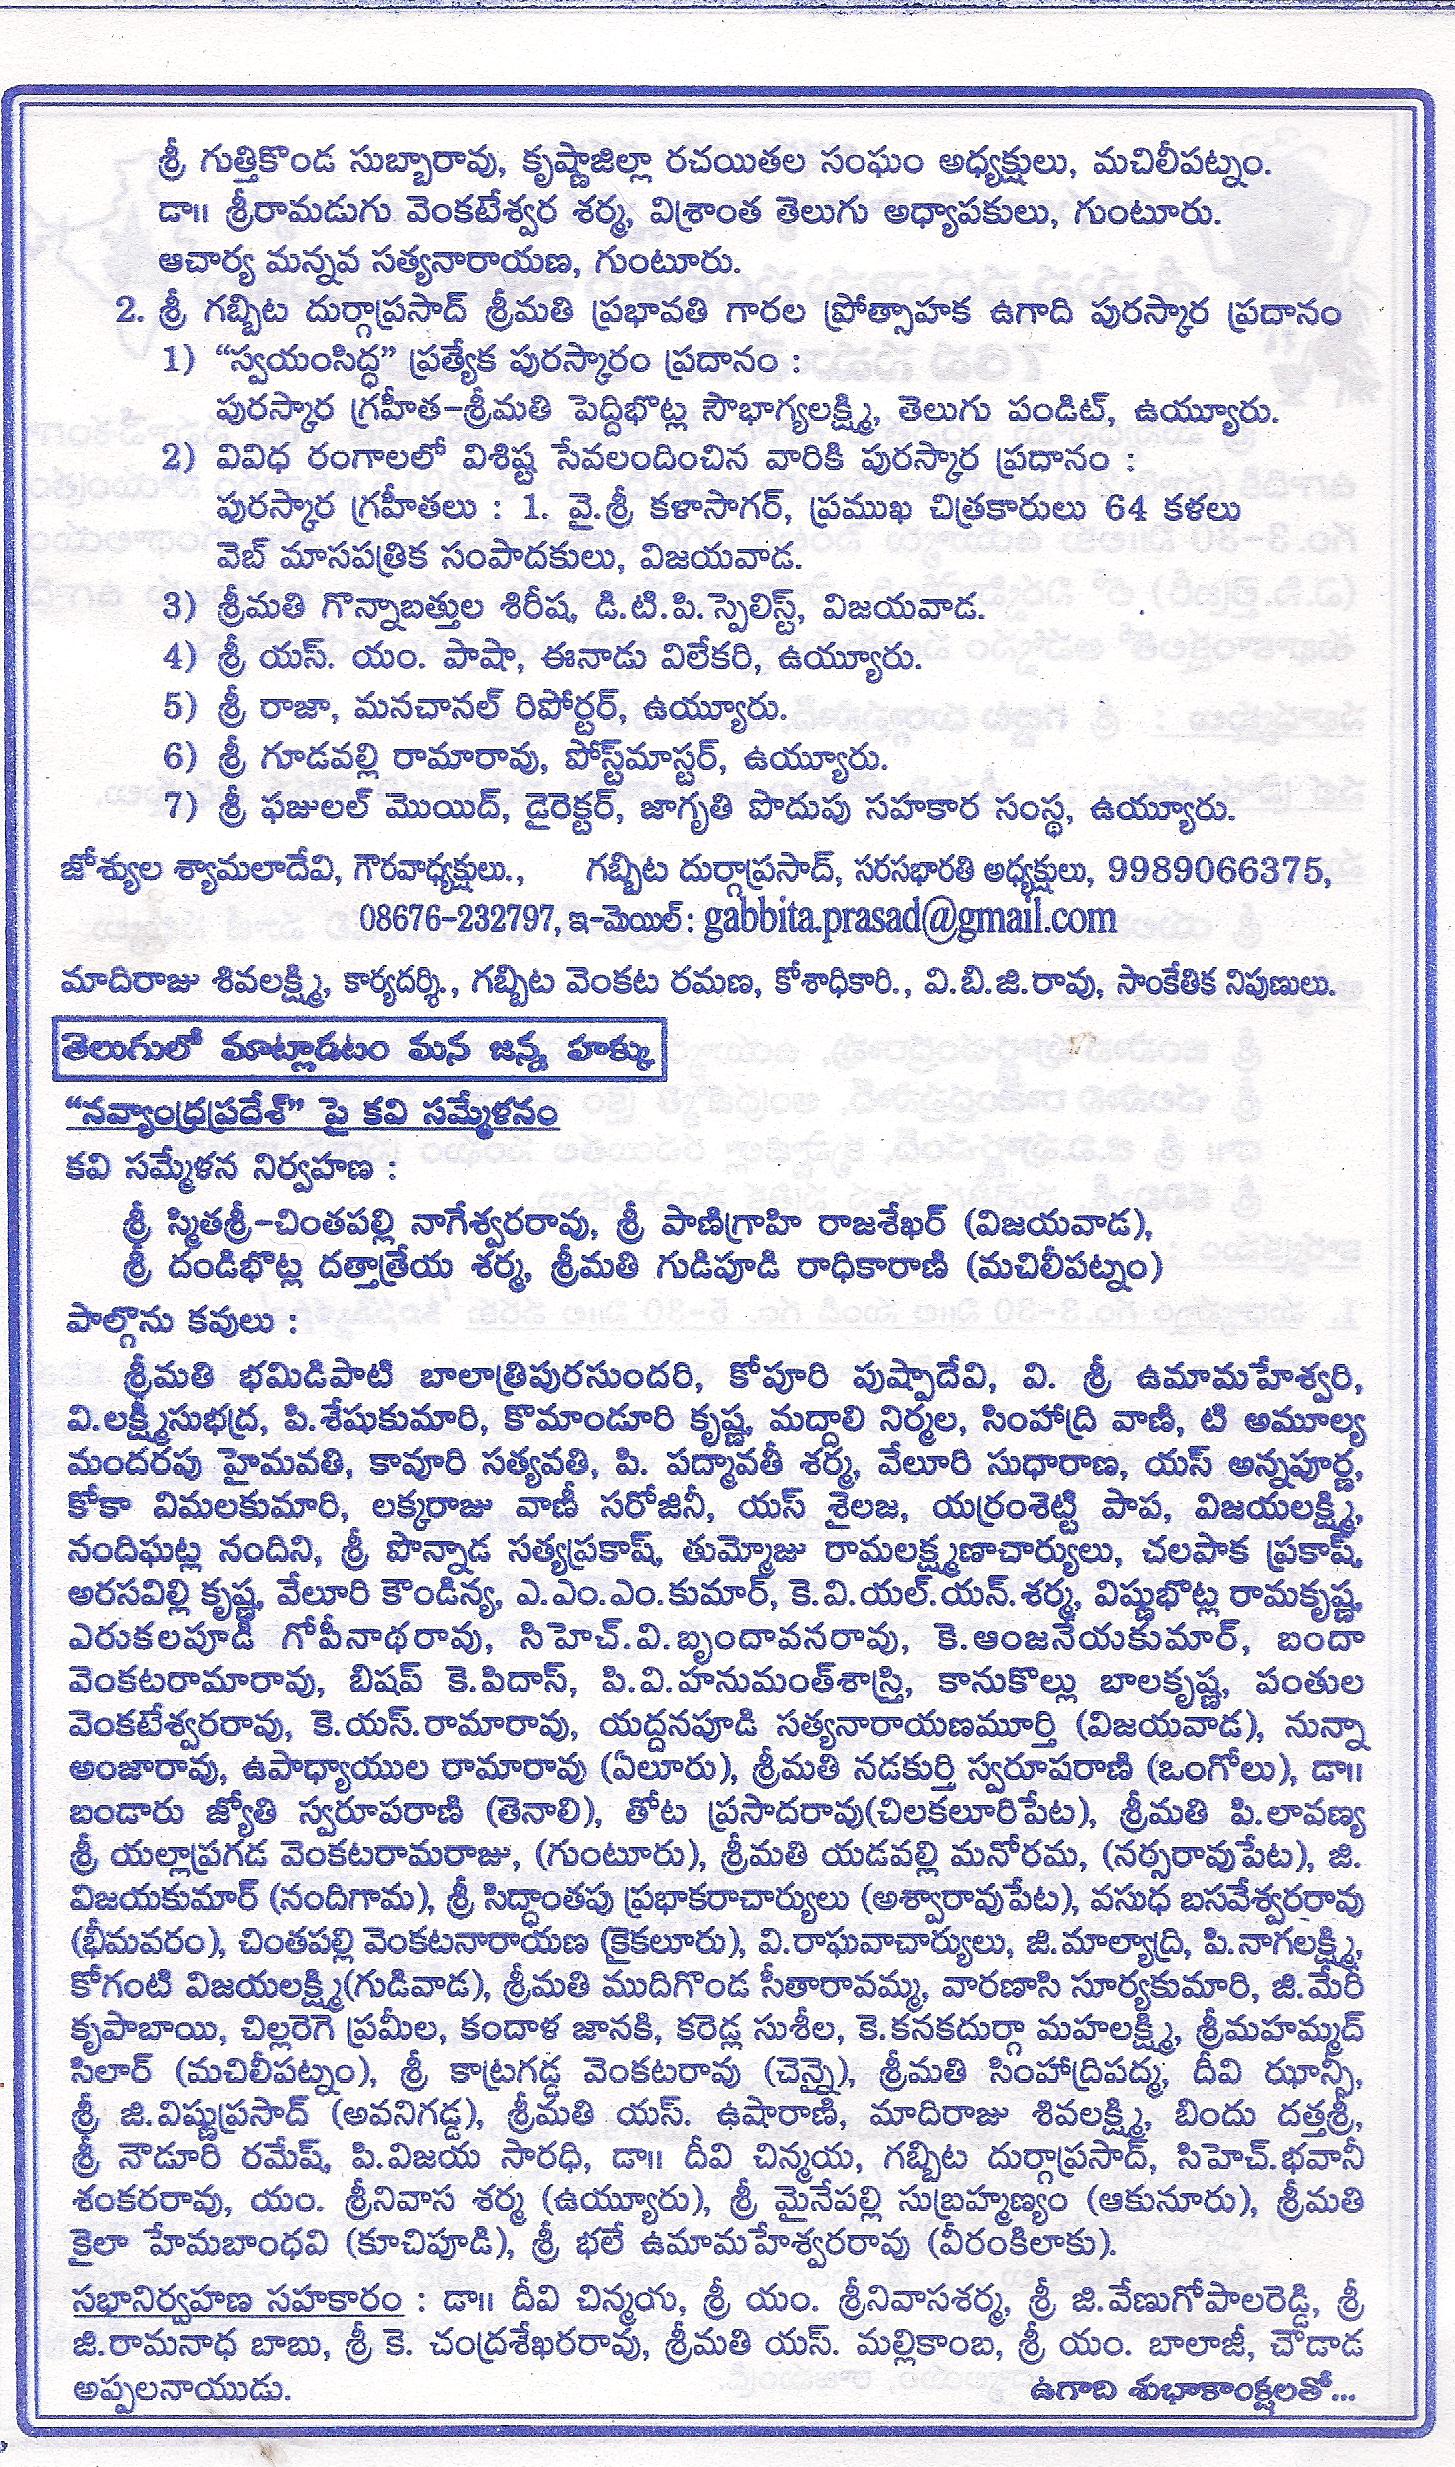 శ్రీ గుత్తికొండ సుబ్బారావు, కృష్ణాజిల్లా రచయితల సంఘం అధ్యక్షులు, మచిలీపట్నం.
డా॥ శ్రీరామడుగు వెంకటేశ్వర శర్మ, విశ్రాంత తెలుగు అధ్యాపకులు, గుంటూరు.
ఆచార్య మన్నవ సత్యనారాయణ, గుంటూరు.
2. శ్రీ గబ్బిట దుర్గాప్రసాద్ శ్రీమతి ప్రభావతి గారల ప్రోత్సాహక ఉగాది పురస్కార ప్రదానం
1) “స్వయంసిద్ధ” ప్రత్యేక పురస్కారం ప్రదానం :
పురస్కార గ్రహీత-శ్రీమతి పెద్దిభొట్ల సౌభాగ్యలక్ష్మి, తెలుగు పండిట్, ఉయ్యూరు.
2) వివిధ రంగాలలో విశిష్ట సేవలందించిన వారికి పురస్కార ప్రదానం :
పురస్కార గ్రహీతలు : 1. వై.శ్రీ కళాసాగర్, ప్రముఖ చిత్రకారులు 64 కళలు
వెబ్ మాసపత్రిక సంపాదకులు, విజయవాడ.
3) శ్రీమతి గొన్నాబత్తుల శిరీష, డి.టి.పి.స్పెలిస్ట్, విజయవాడ.
4) శ్రీ యస్. యం. పాషా, ఈనాడు విలేకరి, ఉయ్యూరు.
5) శ్రీ రాజా, మనచానల్ రిపోర్టర్, ఉయ్యూరు.
6) శ్రీ గూడవల్లి రామారావు, పోస్ట్‌మాస్టర్, ఉయ్యూరు.
7) శ్రీ ఫజులల్ మొయిద్, డైరెక్టర్, జాగృతి పొదుపు సహకార సంస్థ, ఉయ్యూరు.
జోశ్యుల శ్యామలాదేవి, గౌరవాధ్యక్షులు., గబ్బిట దుర్గాప్రసాద్, సరసభారతి అధ్యక్షులు, 9989066375,
08676-232797, ఇ-మెయిల్: gabbita.prasad@gmail.com
మాదిరాజు శివలక్ష్మి, కార్యదర్శి., గబ్బిట వెంకట రమణ, కోశాధికారి., వి.బి.జి.రావు, సాంకేతిక నిపుణులు.
తెలుగులో మాట్లాడటం మన జన్మ హక్కు
“నవ్యాంధ్రప్రదేశ్” పై కవి సమ్మేళనం
కవి సమ్మేళన నిర్వహణ :
శ్రీ స్మితశ్రీ-చింతపల్లి నాగేశ్వరరావు, శ్రీ పాణిగ్రాహి రాజశేఖర్ (విజయవాడ),
శ్రీ దండిభొట్ల దత్తాత్రేయ శర్మ, శ్రీమతి గుడిపూడి రాధికారాణి (మచిలీపట్నం)
పాల్గొను కవులు :
శ్రీమతి భమిడిపాటి బాలాత్రిపురసుందరి, కోపూరి పుష్పాదేవి, వి. శ్రీ ఉమామహేశ్వరి,
వి.లక్ష్మీసుభద్ర, పి.శేషుకుమారి, కొమాండూరి కృష్ణ, మద్దాలి నిర్మల, సింహాద్రి వాణి, టి అమూల్య
మందరపు హైమవతి, కావూరి సత్యవతి, పి. పద్మావతీ శర్మ, వేలూరి సుధారాణ, యస్ అన్నపూర్ణ,
కోకా విమలకుమారి, లక్కరాజు వాణీ సరోజినీ, యస్ శైలజ, యర్రంశెట్టి పాప, విజయలక్ష్మి,
నందిఘట్ల నందిని, శ్రీ పొన్నాడ సత్యప్రకాష్, తుమ్మోజు రామలక్ష్మణాచార్యులు, చలపాక ప్రకాష్,
అరసవిల్లి కృష్ణ, వేలూరి కౌండిన్య, ఎ.ఎం.ఎం.కుమార్, కె.వి.యల్.యన్.శర్మ, విష్ణుభొట్ల రామకృష్ణ,
ఎరుకలపూడి గోపీనాథరావు, సిహెచ్.వి.బృందావనరావు, కె.ఆంజనేయకుమార్, బందా
వెంకటరామారావు, బిషప్ కె.పిదాస్, పి.వి.హనుమంత్‌శాస్త్రి, కానుకొల్లు బాలకృష్ణ, పంతుల
వెంకటేశ్వరరావు, కె.యస్.రామారావు, యద్దనపూడి సత్యనారాయణమూర్తి (విజయవాడ), నున్నా
అంజారావు, ఉపాధ్యాయుల రామారావు (ఏలూరు), శ్రీమతి నడకుర్తి స్వరూపరాణి (ఒంగోలు), డా॥
బండారు జ్యోతి స్వరూపరాణి (తెనాలి), తోట ప్రసాదరావు(చిలకలూరిపేట), శ్రీమతి పి.లావణ్య
శ్రీ యల్లాప్రగడ వెంకటరామరాజు, (గుంటూరు), శ్రీమతి యడవల్లి మనోరమ, (నర్సరావుపేట), జి.
విజయకుమార్ (నందిగామ), శ్రీ సిద్ధాంతపు ప్రభాకరాచార్యులు (అశ్వారావుపేట), వసుధ బసవేశ్వరరావు
(భీమవరం), చింతపల్లి వెంకటనారాయణ (కైకలూరు), వి.రాఘవాచార్యులు, జి.మాల్యాద్రి, పి.నాగలక్ష్మి,
కోగంటి విజయలక్ష్మి(గుడివాడ), శ్రీమతి ముదిగొండ సీతారావమ్మ, వారణాసి సూర్యకుమారి, జి.మేరీ
కృపాబాయి, చిల్లరెగె ప్రమీల, కందాళ జానకి, కరెడ్ల సుశీల, కె.కనకదుర్గా మహలక్ష్మి, శ్రీమహమ్మద్
సిలార్ (మచిలీపట్నం), శ్రీ కాట్రగడ్డ వెంకటరావు (చెన్నై), శ్రీమతి సింహాద్రిపద్మ, దీవి ఝాన్సి,
శ్రీ జి.విష్ణుప్రసాద్ (అవనిగడ్డ), శ్రీమతి యస్. ఉషారాణి, మాదిరాజు శివలక్ష్మి, బిందు దత్తశ్రీ,
శ్రీ నౌడూరి రమేష్, పి.విజయ సారధి, డా॥ దీవి చిన్మయ, గబ్బిట దుర్గాప్రసాద్, సిహెచ్.భవానీ
శంకరరావు, యం. శ్రీనివాస శర్మ (ఉయ్యూరు), శ్రీ మైనేపల్లి సుబ్రహ్మణ్యం (ఆకునూరు), శ్రీమతి
కైలా హేమబాంధవి (కూచిపూడి), శ్రీ భలే ఉమామహేశ్వరరావు (వీరంకిలాకు).
సభానిర్వహణ సహకారం : డా॥ దీవి చిన్మయ, శ్రీ యం. శ్రీనివాసశర్మ, శ్రీ జి.వేణుగోపాలరెడ్డి, శ్రీ
జి.రామనాధ బాబు, శ్రీ కె. చంద్రశేఖరరావు, శ్రీమతి యస్. మల్లికాంబ, శ్రీ యం. బాలాజీ, చౌడాడ
అప్పలనాయుడు. ఉగాది శుభాకాంక్షలతో...